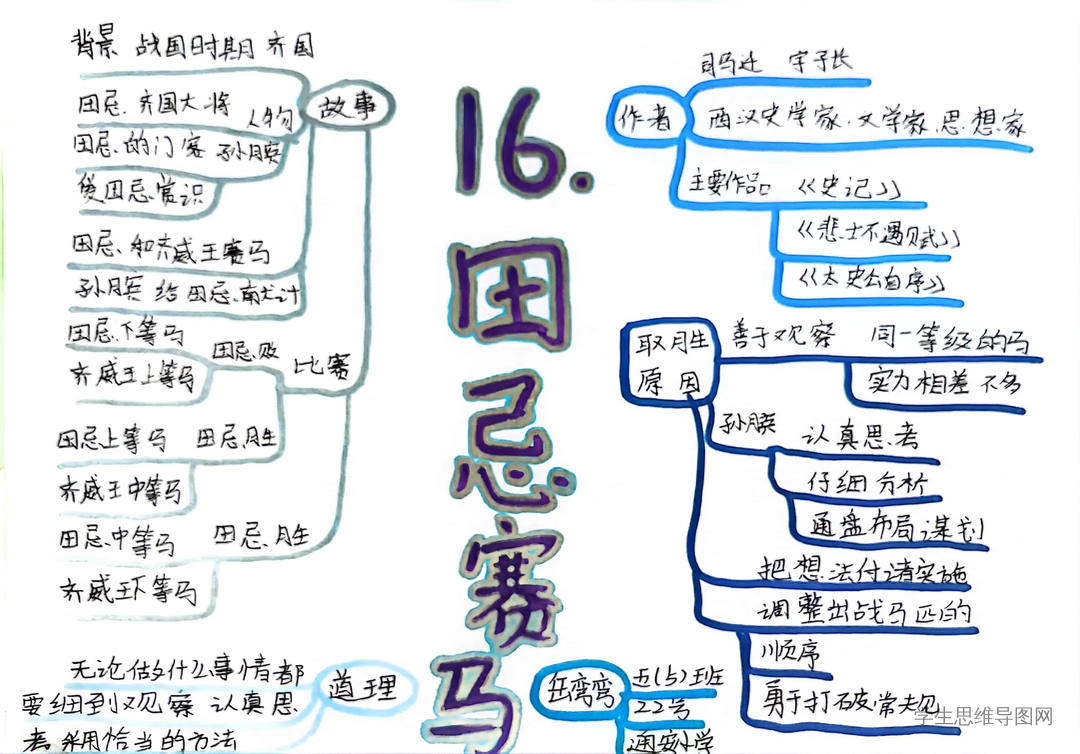 16.田忌赛马
故事
背景 战国时期 齐国
人物
田忌 齐国大将
田忌的门客 孙膑
受田忌赏识
田忌和齐威王赛马
孙膑给田忌献计
比赛
田忌下等马
田忌败
齐威王上等马
田忌上等马 田忌胜
齐威王中等马
田忌中等马 田忌胜
齐威王下等马
道理
无论做什么事情都
要细到观察 认真思
考 采用恰当的方法
作者
司马迁 字子长
西汉史学家、文学家、思想家
主要作品 《史记》
《悲士不遇赋》
《太史公自序》
取胜
原因
善于观察 同一等级的马
实力相差不多
孙膑 认真思考
仔细分析
通盘布局谋划
把想法付诸实施
调整出战马匹的
顺序
勇于打破常规
岳弯弯
五(5)班
22号
通安小学
学生思维导图网